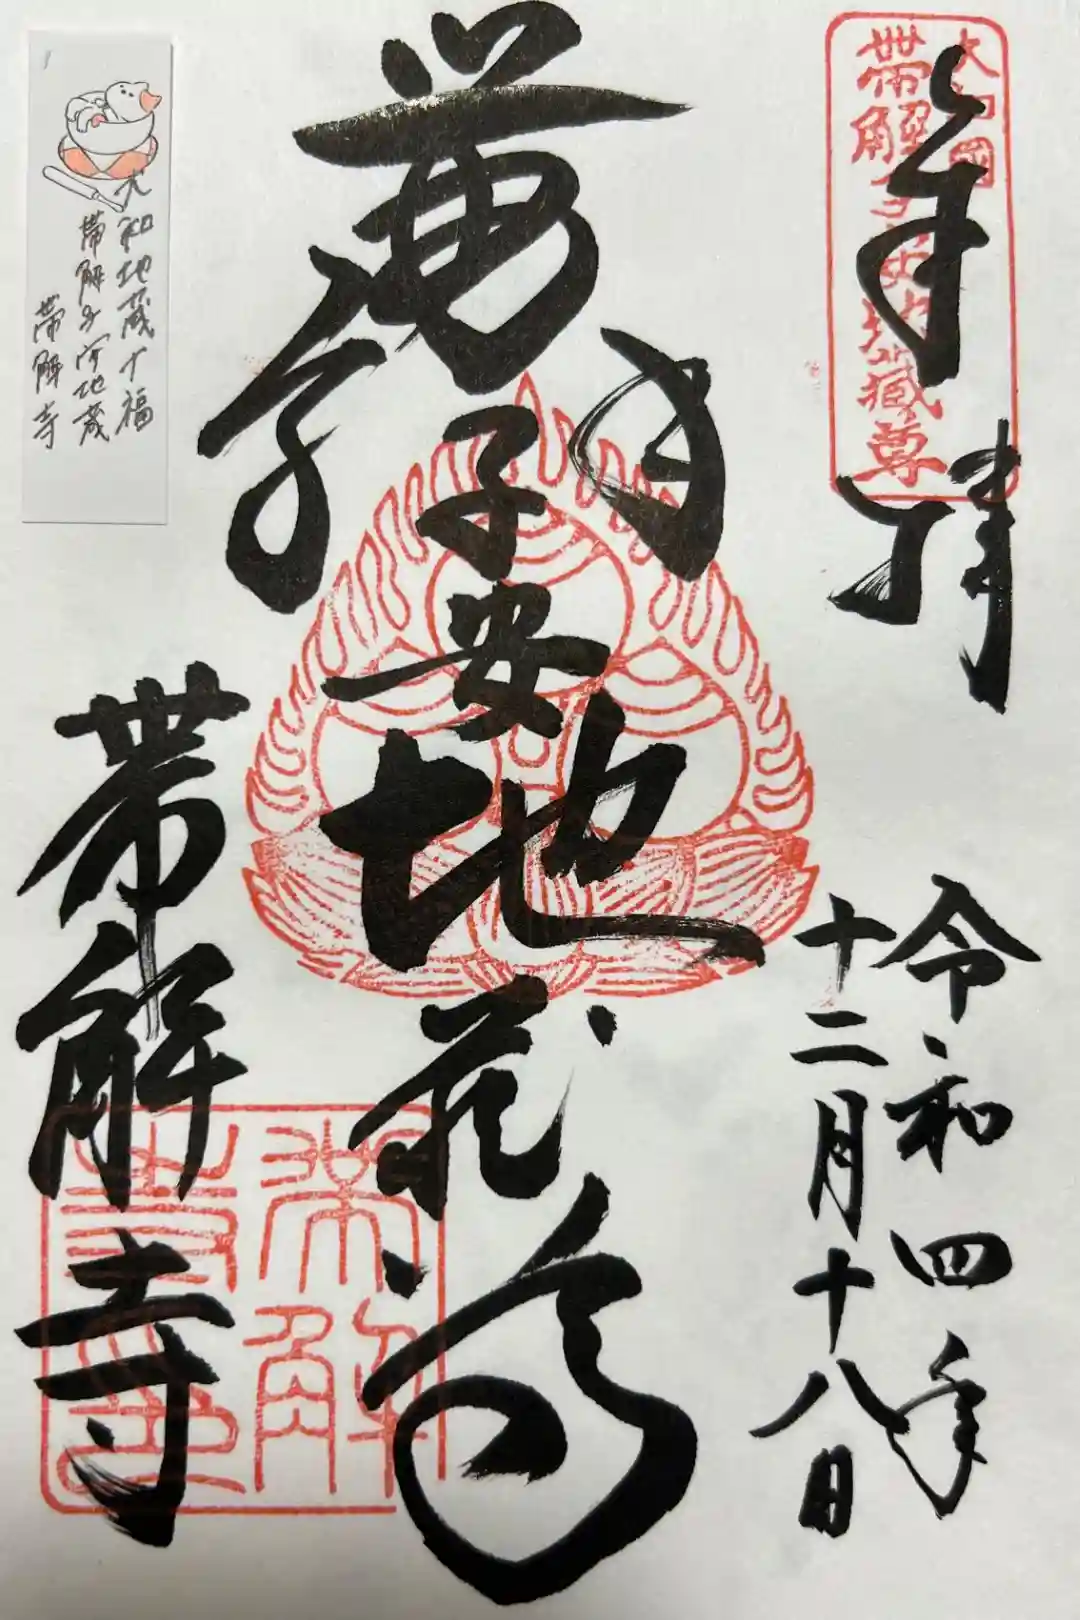 奉拝
大和国
帯解子安地蔵尊
令和四年
十二月十八日
帯解
子安地蔵尊
帯解寺
帯解
寺印
大和地蔵十福
帯解子安地蔵
帯解寺